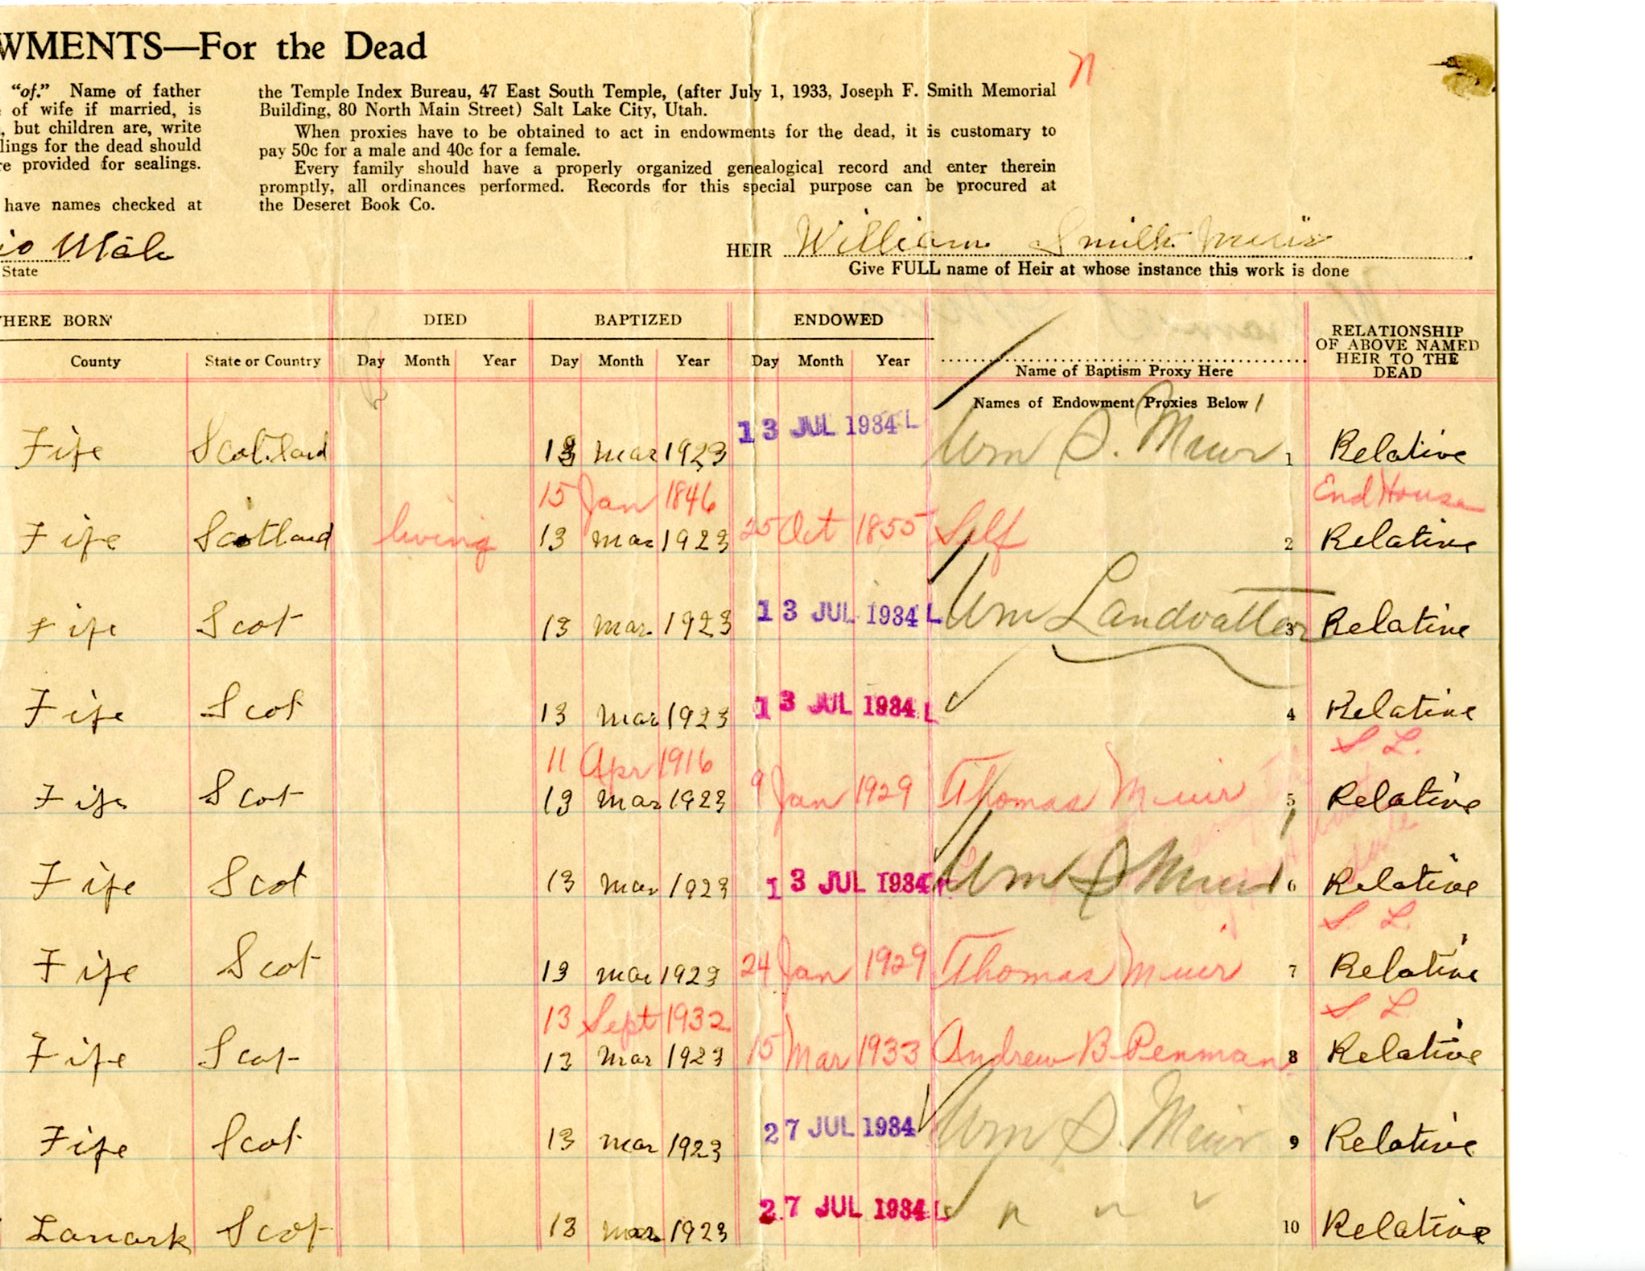 WMENTS—For the Dead
n
"of." Name of father
of wife if married, is
, but children are, write
lings for the dead should
e provided for sealings.
have names checked at
the Temple Index Bureau, 47 East South Temple, (after July 1, 1933, Joseph F. Smith Memorial
Building, 80 North Main Street) Salt Lake City, Utah.
When proxies have to be obtained to act in endowments for the dead, it is customary to
pay 50c for a male and 40c for a female.
Every family should have a properly organized genealogical record and enter therein
promptly, all ordinances performed. Records for this special purpose can be procured at
the Deseret Book Co.
io Utah
State
HEIR William Smith Muir
Give FULL name of Heir at whose instance this work is done
HERE BORN DIED BAPTIZED ENDOWED
RELATIONSHIP
OF ABOVE NAMED
HEIR TO THE
DEAD
County State or Country Day Month Year Day Month Year Day Month Year Name of Baptism Proxy Here
Names of Endowment Proxies Below
Fife Scotland 13 mar 1923 13 JUL 1934 L Wm S. Muir 1 Relative
15 Jan 1846 End House
Fife Scotland living 13 mar 1923 25 Oct 1855 Self 2 Relative
Fife Scot 13 mar. 1923 13 JUL 1934 L Wm Landvatter 3 Relative
Fife Scot 13 mar 1923 13 JUL 1934 L 4 Relative
11 Apr 1916 S L.
Fife Scot 13 mar 1923 9 Jan 1929 Thomas Muir 5 Relative
Fife Scot 13 mar 1923 13 JUL 1934 Wm S Muir 6 Relative
S L.
Fife Scot 13 mar 1923 24 Jan 1929 Thomas Muir 7 Relative
13 Sept 1932 S L
Fife Scot 13 mar 1923 15 Mar 1933 Andrew B Penman 8 Relative
Fife Scot 13 mar 1923 27 JUL 1934 Wm S. Muir 9 Relative
Lanark Scot 13 mar 1923 27 JUL 1934 L " " " 10 Relative